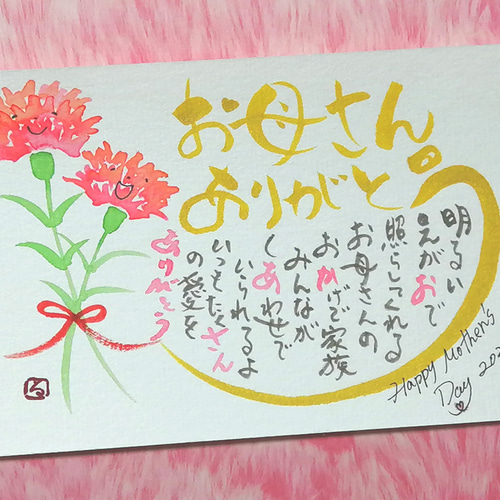 お母さん
ありがとう
明るい
えがおで
照らしてくれる
お母さんの
おかげで家族
みんなが
しあわせで
いられるよ
いつもたくさん
の愛を
ありがとう
Happy Mother's
Day
る